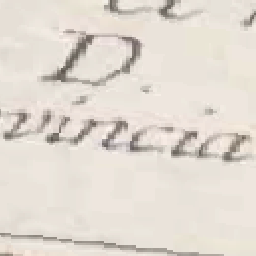 D.
vincia